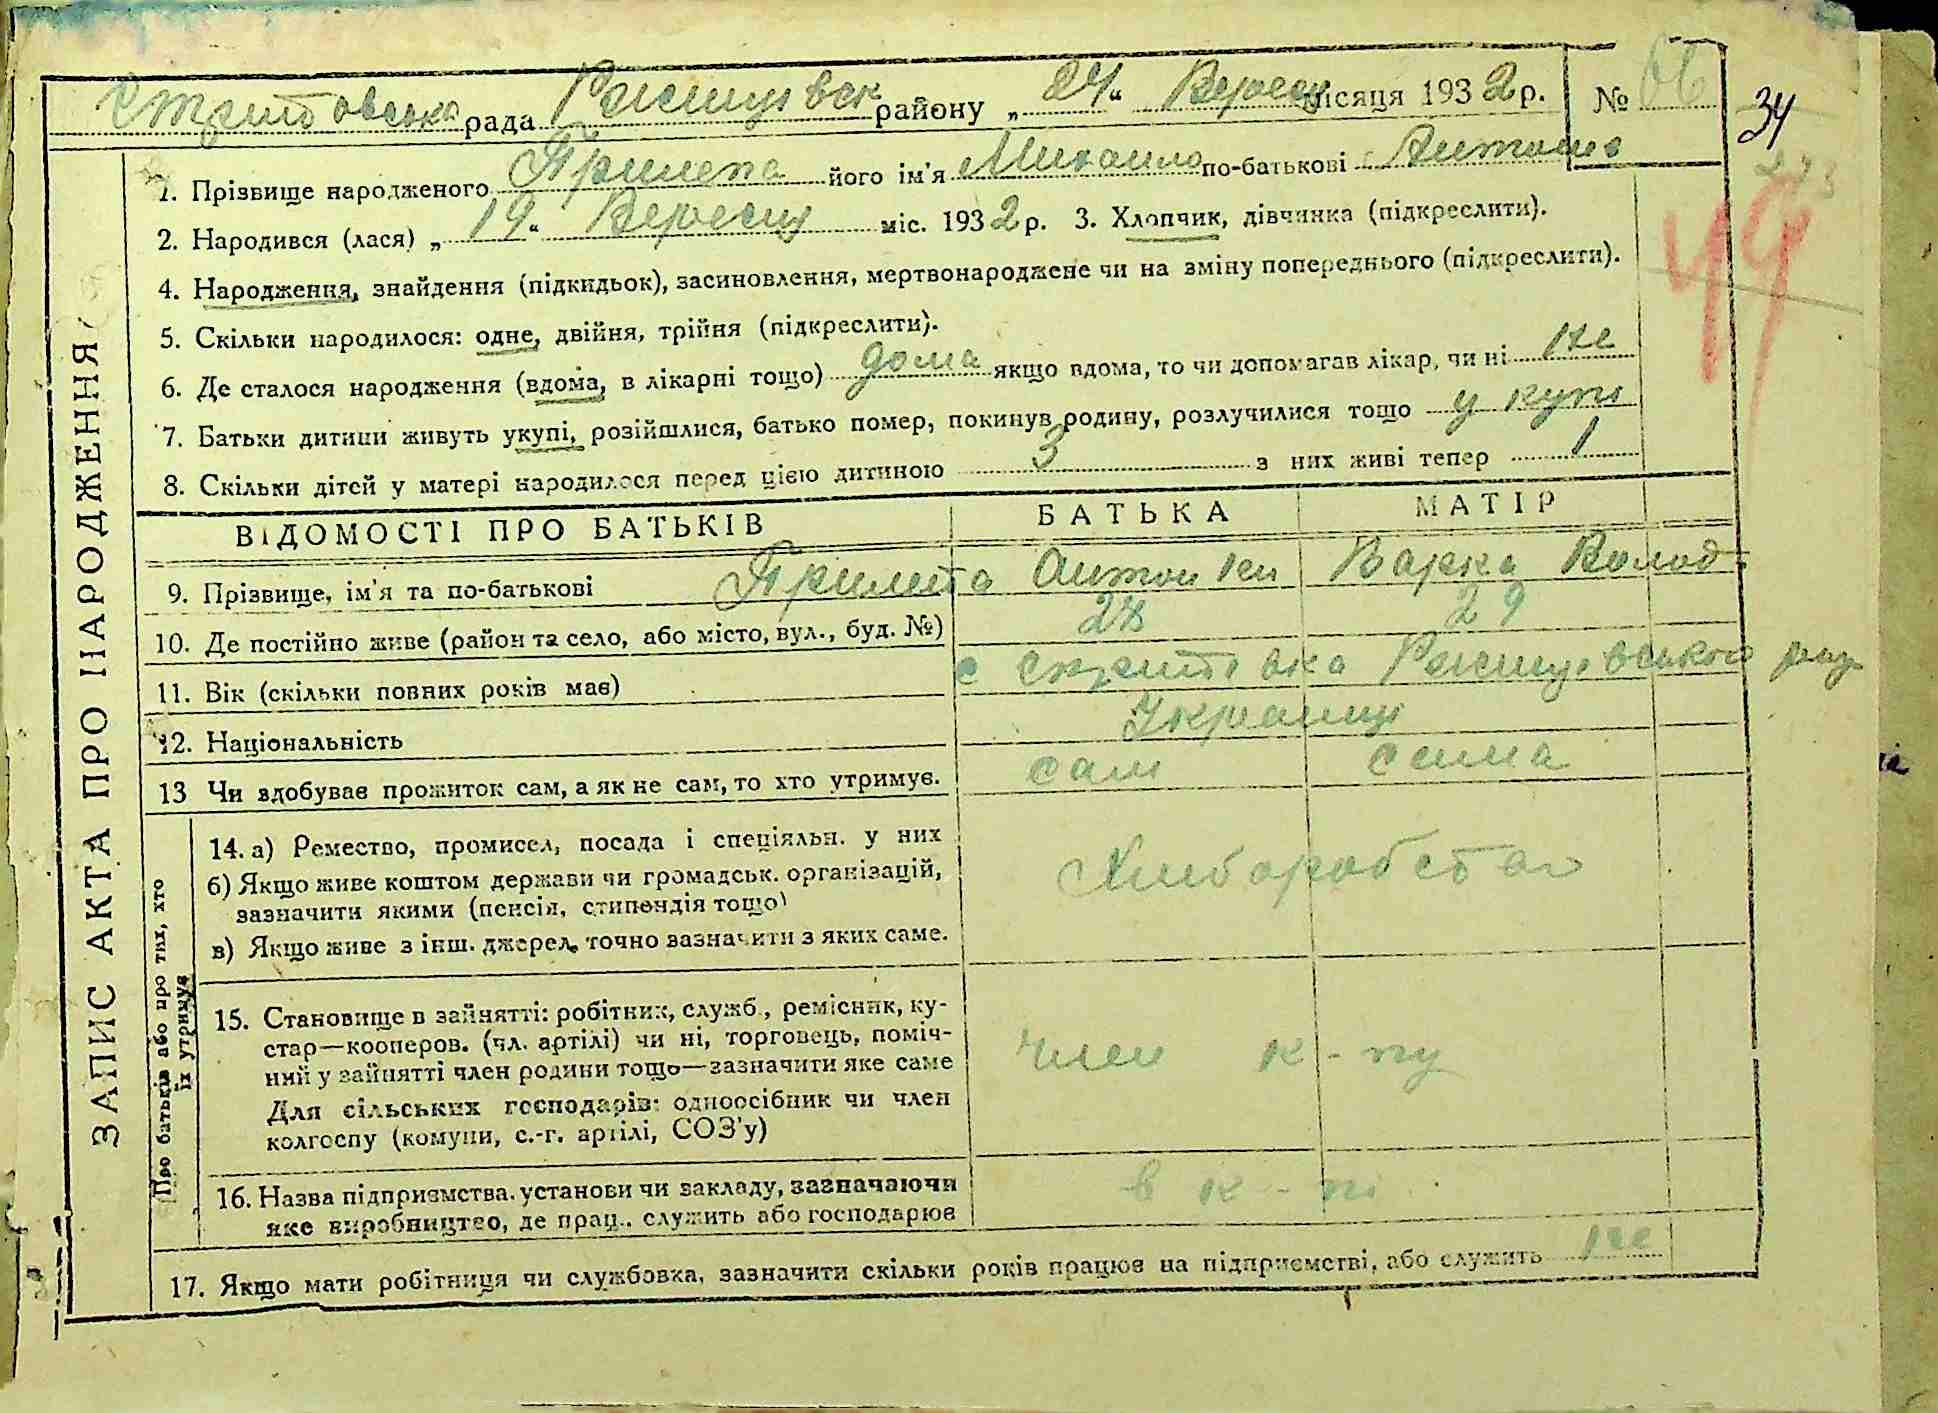 Стритовська рада Ржищівськ району „24“ Вересня місяця 1932 р. № 66
34
1. Прізвище народженого Прилепа його ім'я Михаило по-батькові Антонів
49
2. Народився (лася) „19“ Вересня міс. 1932 р. 3. Хлопчик, дівчинка (підкреслити).
4. Народження, знайдення (підкидьок), засиновлення, мертвонароджене чи на зміну попереднього (підкреслити).
5. Скільки народилося: одне, двійня, трійня (підкреслити).
6. Де сталося народження (вдома, в лікарні тощо) дома якщо вдома, то чи допомагав лікар, чи ні не
7. Батьки дитини живуть укупі, розійшлися, батько помер, покинув родину, розлучилися тощо у купі
8. Скільки дітей у матері народилося перед цією дитиною 3 з них живі тепер 1
ВІДОМОСТІ ПРО БАТЬКІВ БАТЬКА МАТІР
9. Прізвище, ім'я та по-батькові Прилепа Антон Варка Волод
10. Де постійно живе (район та село, або місто, вул., буд. №) 28 29
11. Вік (скільки повних років має) с Стритівка Ржищівського рай
12. Національність Украинці
13 Чи здобуває прожиток сам, а як не сам, то хто утримує. сам сама
14. а) Ремество, промисел, посада і спеціяльн. у них
б) Якщо живе коштом держави чи громадськ. організацій,
зазначити якими (пенсія, стипендія тощо)
в) Якщо живе з інш. джерел, точно зазначити з яких саме.
Хлиборобство
15. Становище в зайнятті: робітник, служб., ремісник, ку-
стар—кооперов. (чл. артілі) чи ні, торговець, поміч-
ний у зайнятті член родини тощо—зазначити яке саме
Для сільських господарів: одноосібник чи член
колгоспу (комуни, с.-г. артілі, СОЗ'у)
член к-пу
16. Назва підприємства, установи чи закладу, зазначаючи
яке виробництво, де прац., служить або господарює
в к-пі
17. Якщо мати робітниця чи службовка, зазначити скільки років працює на підприємстві, або служить не
ЗАПИС АКТА ПРО НАРОДЖЕННЯ
Про батьків або про тих, хто
їх утримує